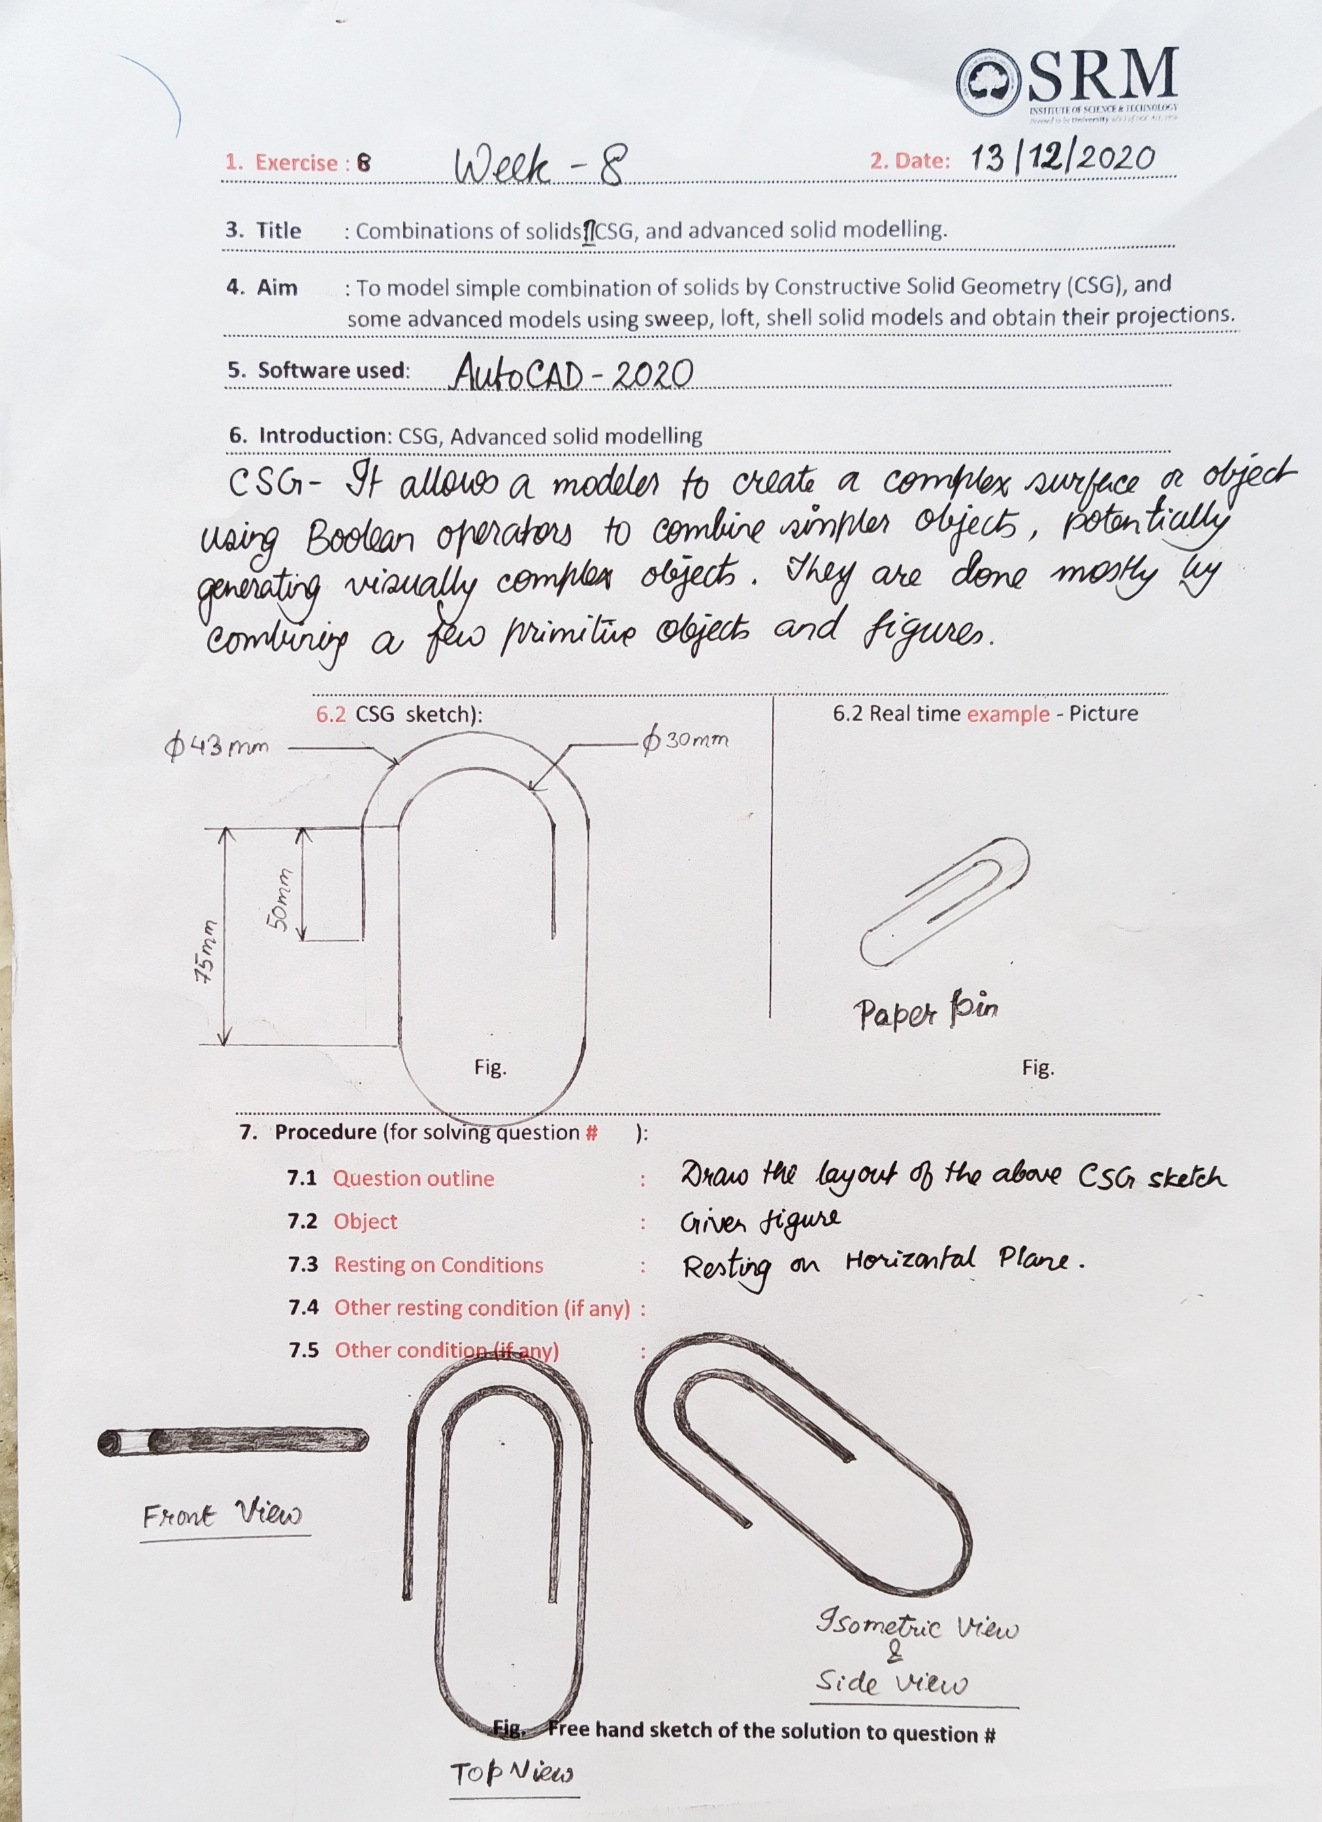 SRM
INSTITUTE OF SCIENCE & TECHNOLOGY
1. Exercise : 8 Week - 8 2. Date: 13/12/2020
3. Title : Combinations of solids CSG, and advanced solid modelling.
4. Aim : To model simple combination of solids by Constructive Solid Geometry (CSG), and
some advanced models using sweep, loft, shell solid models and obtain their projections.
5. Software used: AutoCAD - 2020
6. Introduction: CSG, Advanced solid modelling
CSG - It allows a modeler to create a complex surface or object
using Boolean operators to combine simpler objects, potentially
generating visually complex objects. They are done mostly by
combining a few primitive objects and figures.
6.2 CSG sketch): 6.2 Real time example - Picture
ϕ43mm ϕ30mm
50mm
75mm
Paper pin
Fig. Fig.
7. Procedure (for solving question # ):
7.1 Question outline : Draw the layout of the above CSG sketch
7.2 Object : Given figure
7.3 Resting on Conditions : Resting on Horizontal Plane.
7.4 Other resting condition (if any) :
7.5 Other condition (if any) :
Front View
Isometric View
&
Side view
Fig. Free hand sketch of the solution to question #
Top View